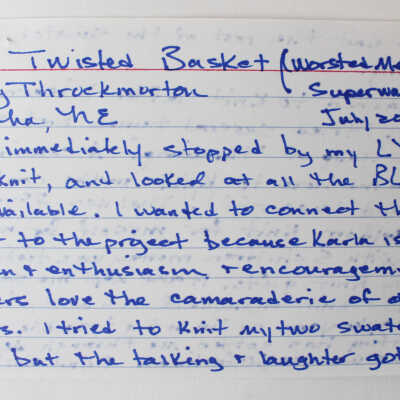 Twisted Basket (Worsted Me
y Throckmorton Superwa
ha, NE July 20
immediately stopped by my LY
knit, and looked at all the BL
vailable. I wanted to connect th
to the project because Karla is
n + enthusiasm + encouragem
rs love the camaraderie of o
s. I tried to knit my two swat
but the talking + laughter got